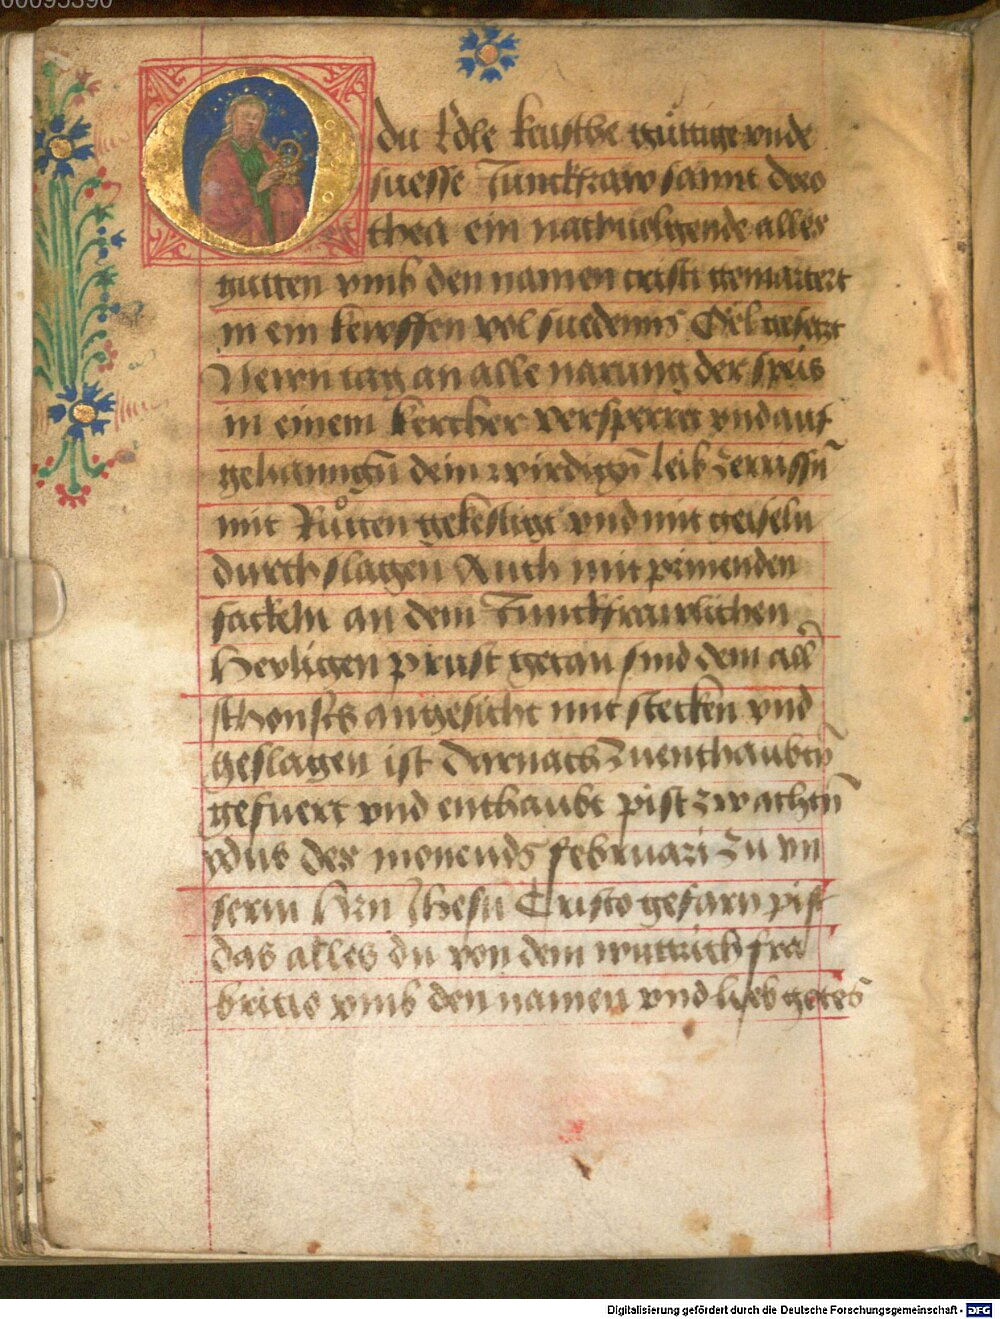 00095390
O du Edle keusche güttige vnde
suesse Junckfraw sannt doro
thea ein nachuolgende alles
gutten vmb den namen cristi gemartert
in ein keroffen vol suedenns Oel gesetzt
Newn tag an alle narung der speis
in einem kercher versperret vnd auf
gehanngen̄ dein wirdign̄ leib zerrissn̄
mit Růtten gekestigt vnd mit geiseln
durch slagen̄ Auch mit prinenden
fackeln an dem Junckfrawlichen
heyligen prust getan sind dem all
schonsts angesicht mit stecken vnd
geslagen ist darnach zu enthaubtn̄
gefuert vnd enthaubt pist zw achtn̄
ydus des monends february zu vn
serm hrn Jhesu Cristo gefarn pist
das alles du von dem wuttrich fra
bricio vmb den namen vnd lieb gotes
Digitalisierung gefördert durch die Deutsche Forschungsgemeinschaft - DFG